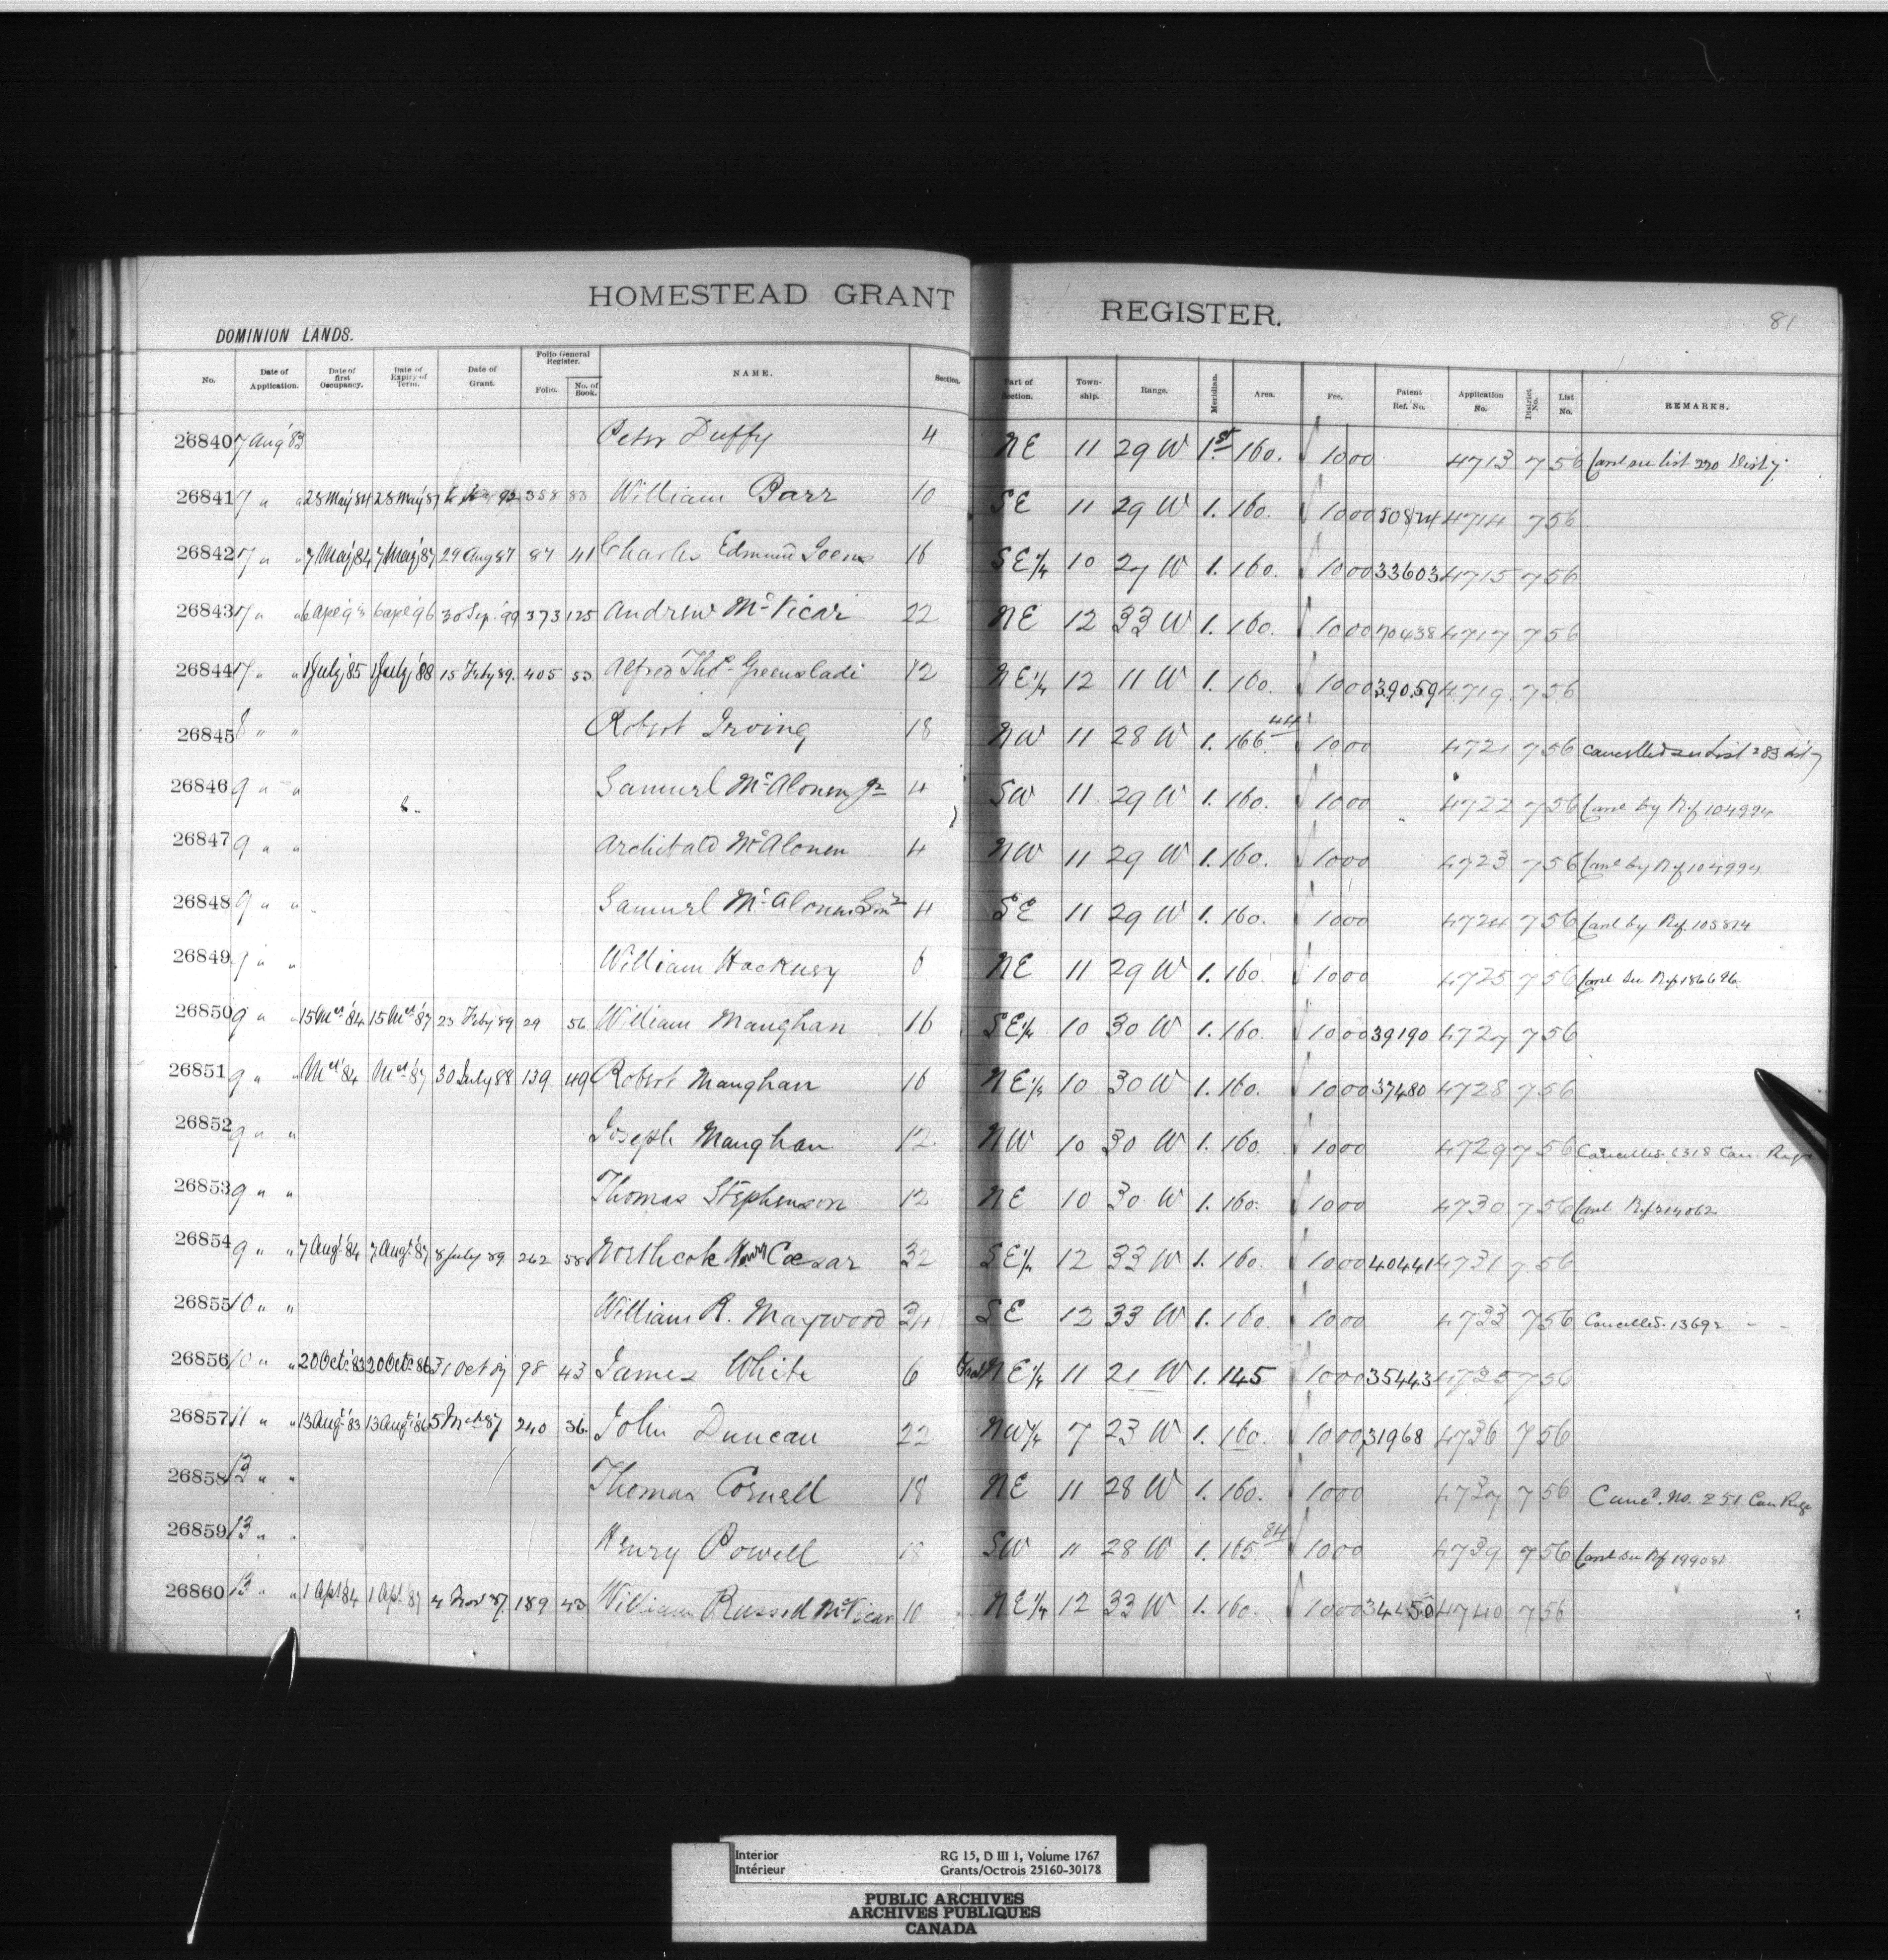 HOMESTEAD GRANT REGISTER.
81
DOMINION LANDS.
No. Date of Application. Date of first Occupancy. Date of Expiry of Term. Date of Grant. Folio General Register. Folio. No. of Book. NAME. Section. Part of Section. Town-ship. Range. Meridian. Area. Fee. Patent Ref. No. Application No. District No. List No. REMARKS.
26840 7 Aug '83 Peter Duffy 4 NE 11 29 W 1st 160. 10 00 4713 7 56 list 220 Dist 7
26841 7 " " 28 May '84 28 May '87 358 83 William Barr 10 SE 11 29 W 1. 160. 10 00 50874 4714 7 56
26842 7 " " 7 May '84 7 May '87 29 Aug 87 87 41 Charles Edmund 16 SE 1/4 10 27 W 1. 160. 10 00 33603 4715 7 56
26843 7 " " 30 Sep. '99 373 125 Andrew McVicar 22 NE 12 33 W 1. 160. 10 00 70438 4717 7 56
26844 7 " " 1 July '85 1 July '88 15 Feby 89. 405 53 Alfred Thos. Greenslade 12 NE 1/4 12 11 W 1. 160. 10 00 39059 4719 7 56
26845 8 " " Robert Irving 18 NW 11 28 W 1. 166.44 10 00 4721 7 56 Cancelled see List 283 Dist 7
26846 9 " " Samuel McAlonen Jr 4 SW 11 29 W 1. 160. 10 00 4722 7 56 Canc by Ref 104994
26847 9 " " Archibald McAlonen 4 NW 11 29 W 1. 160. 10 00 4723 7 56 Canc by Ref 104994
26848 9 " " Samuel McAlonen Senr 4 SE 11 29 W 1. 160. 10 00 4724 7 56 Canc by Ref. 105814
26849 9 " " William Hackney 6 NE 11 29 W 1. 160. 10 00 4725 7 56 Canc See Ref 186696
26850 9 " " 15 Mch '84 15 Mch '87 23 Feby '89 29 56 William Maughan 16 SE 1/4 10 30 W 1. 160. 10 00 39190 4727 7 56
26851 9 " " Mch '84 Mch '87 30 July 88 139 49 Robert Maughan 16 NE 1/4 10 30 W 1. 160. 10 00 37480 4728 7 56
26852 9 " " Joseph Maughan 12 NW 10 30 W 1. 160. 10 00 4729 7 56 Cancelled 6318 Can. Regr
26853 9 " " Thomas Stephenson 12 NE 10 30 W 1. 160. 10 00 4730 7 56 Canc Ref 214062
26854 9 " " 7 Augt '84 7 Augt '87 8 July 89. 262 58 Northcote Henry Cæsar 32 SE 1/4 12 33 W 1. 160. 10 00 40441 4731 7 56
26855 10 " " William R. Maywood 34 SE 12 33 W 1. 160. 10 00 4733 7 56 Cancelled. 13692 - -
26856 10 " " 20 Oct. '83 20 Oct. '86 31 Oct 87 98 43 James White 6 Frac NE 1/4 11 21 W 1. 145 10 00 35443 4735 7 56
26857 11 " " 13 Augt '83 13 Augt '86 5 Mch 87 240 36 John Duncan 22 NW 1/4 7 23 W 1. 160. 10 00 31968 4736 7 56
26858 13 " " Thomas Cornell 18 NE 11 28 W 1. 160. 10 00 4737 7 56 Cancd. No. 251 Can Rege
26859 13 " " Henry Powell 18 SW 11 28 W 1. 165.84 10 00 4739 7 56 Canc See Ref 199081
26860 13 " " 1 Apl '84 1 Apl '87 4 Nov '87 189 43 William Russel McVicar 10 NE 1/4 12 33 W 1. 160. 10 00 34450 4740 7 56
Interior RG 15, D III 1, Volume 1767
Intérieur Grants/Octrois 25160-30178
PUBLIC ARCHIVES
ARCHIVES PUBLIQUES
CANADA